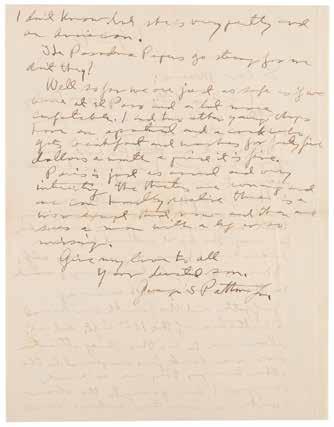 I dont know but she is very pretty and
an American.
The Pasadena Papers go strong for me
dont they?
Well so far we are just as safe as if we
were at El Paso and a lot more
comfortable. I and two other young chaps
have an apartment and a cook who
gets breakfast and washes for forty five
dollars a month a piece it is fine.
Paris is just as usual and very
interesting the theaters are running and
we can hardly realize there is a
war except that now and then one
sees a man with a leg or so
missing.
Give my love to all
Your devoted son.
George S Patton Jr.